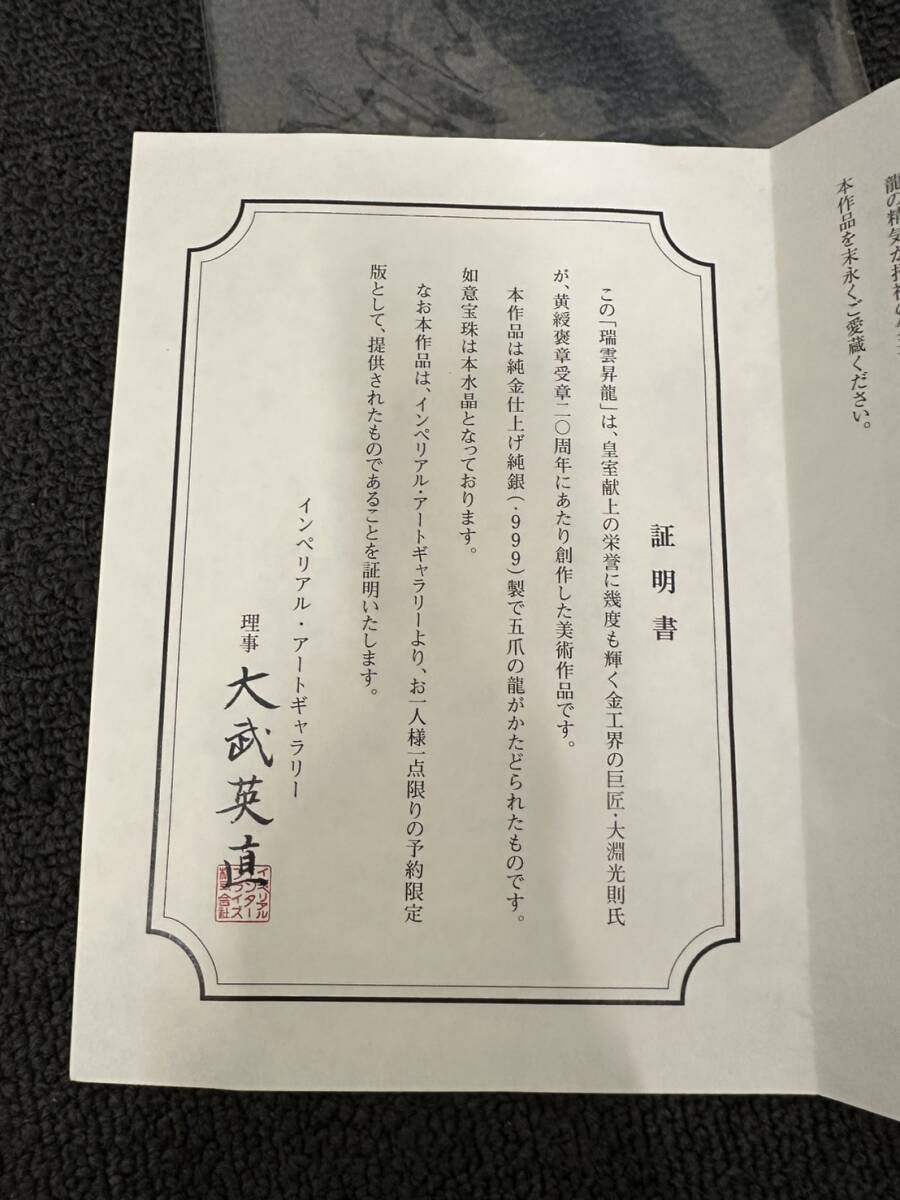 龍の精気が
本作品を末永くご愛蔵ください。
証明書
この「瑞雲昇龍」は、皇室献上の栄誉に幾度も輝く金工界の巨匠・大淵光則氏
が、黄綬褒章受章二〇周年にあたり創作した美術作品です。
本作品は純金仕上げ純銀(・999)製で五爪の龍がかたどられたものです。
如意宝珠は本水晶となっております。
なお本作品は、インペリアル・アートギャラリーより、お一人様一点限りの予約限定
版として、提供されたものであることを証明いたします。
インペリアル・アートギャラリー
理事 大武英直